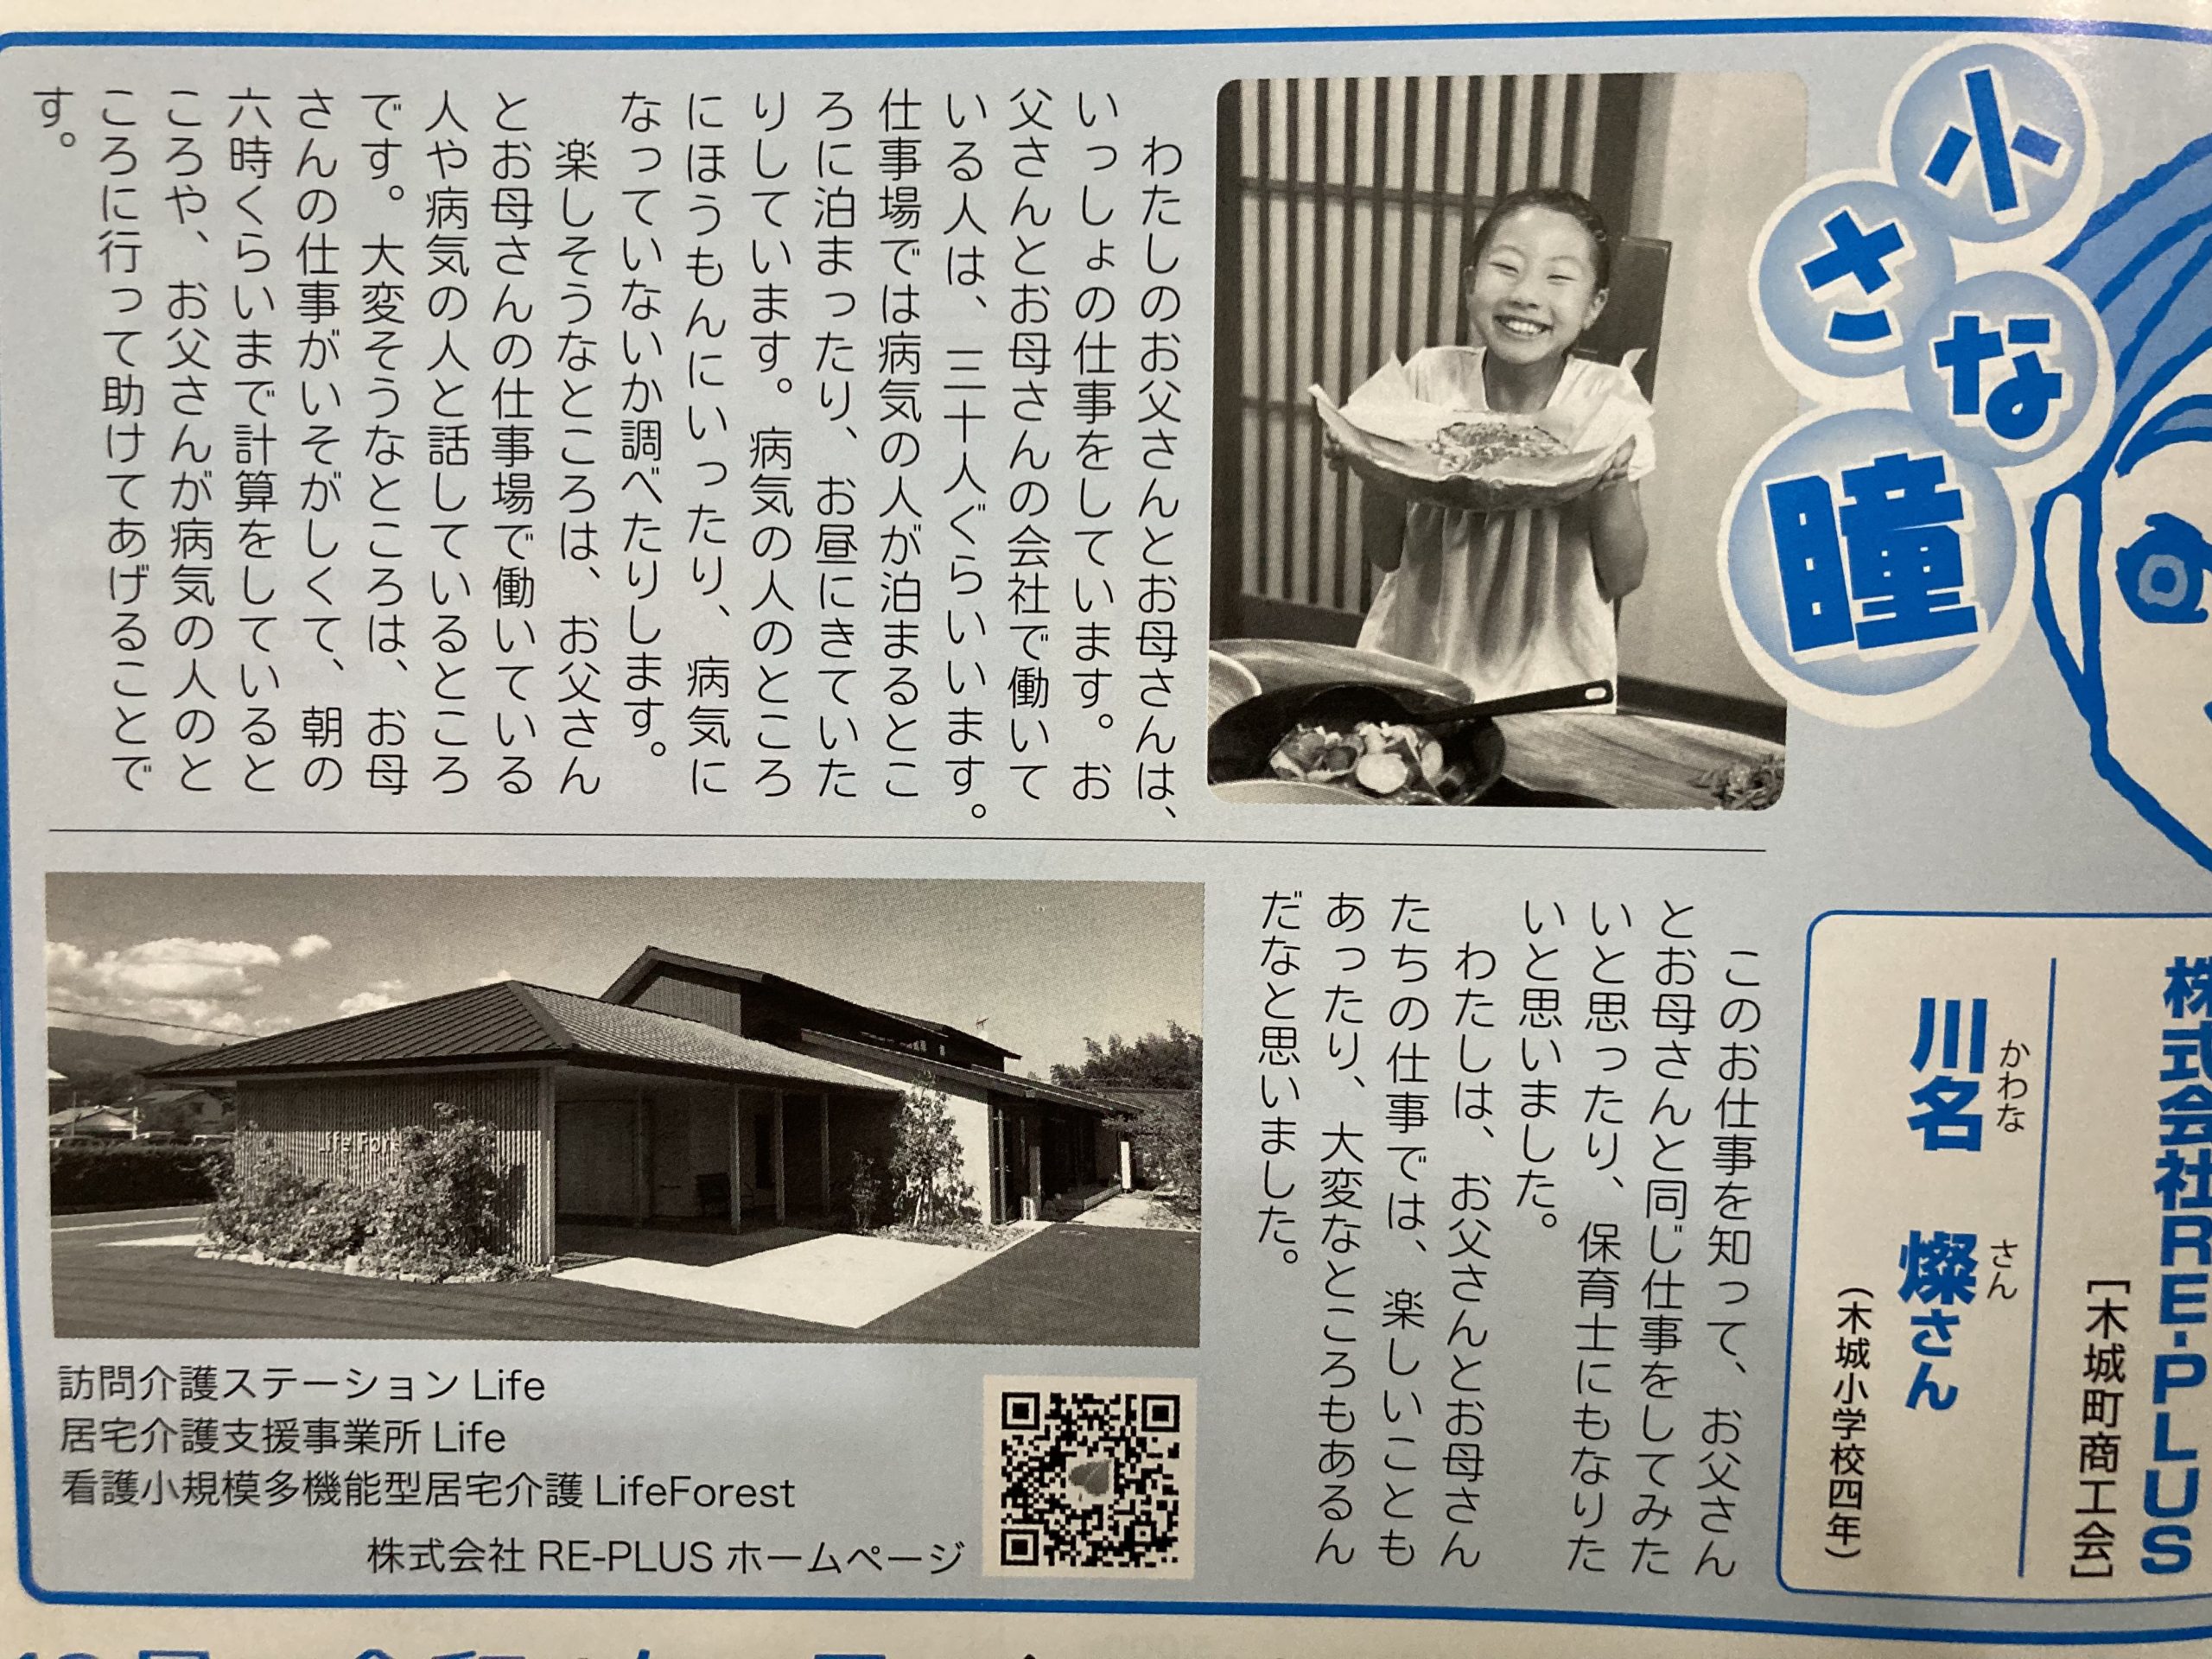 小さな瞳
株式会社RE-PLUS
［木城町商工会］
かわな　さん
川名　燦さん
（木城小学校四年）
わたしのお父さんとお母さんは、
いっしょの仕事をしています。お
父さんとお母さんの会社で働いて
いる人は、三十人ぐらいいます。
仕事場では病気の人が泊まるとこ
ろに泊まったり、お昼にきていた
りしています。病気の人のところ
にほうもんにいったり、病気に
なっていないか調べたりします。
楽しそうなところは、お父さん
とお母さんの仕事場で働いている
人や病気の人と話しているところ
です。大変そうなところは、お母
さんの仕事がいそがしくて、朝の
六時くらいまで計算をしていると
ころや、お父さんが病気の人のと
ころに行って助けてあげることで
す。
このお仕事を知って、お父さん
とお母さんと同じ仕事をしてみた
いと思ったり、保育士にもなりた
いと思いました。
わたしは、お父さんとお母さん
たちの仕事では、楽しいことも
あったり、大変なところもあるん
だなと思いました。
Life Fore
訪問介護ステーション Life
居宅介護支援事業所 Life
看護小規模多機能型居宅介護 LifeForest
株式会社 RE-PLUS ホームページ